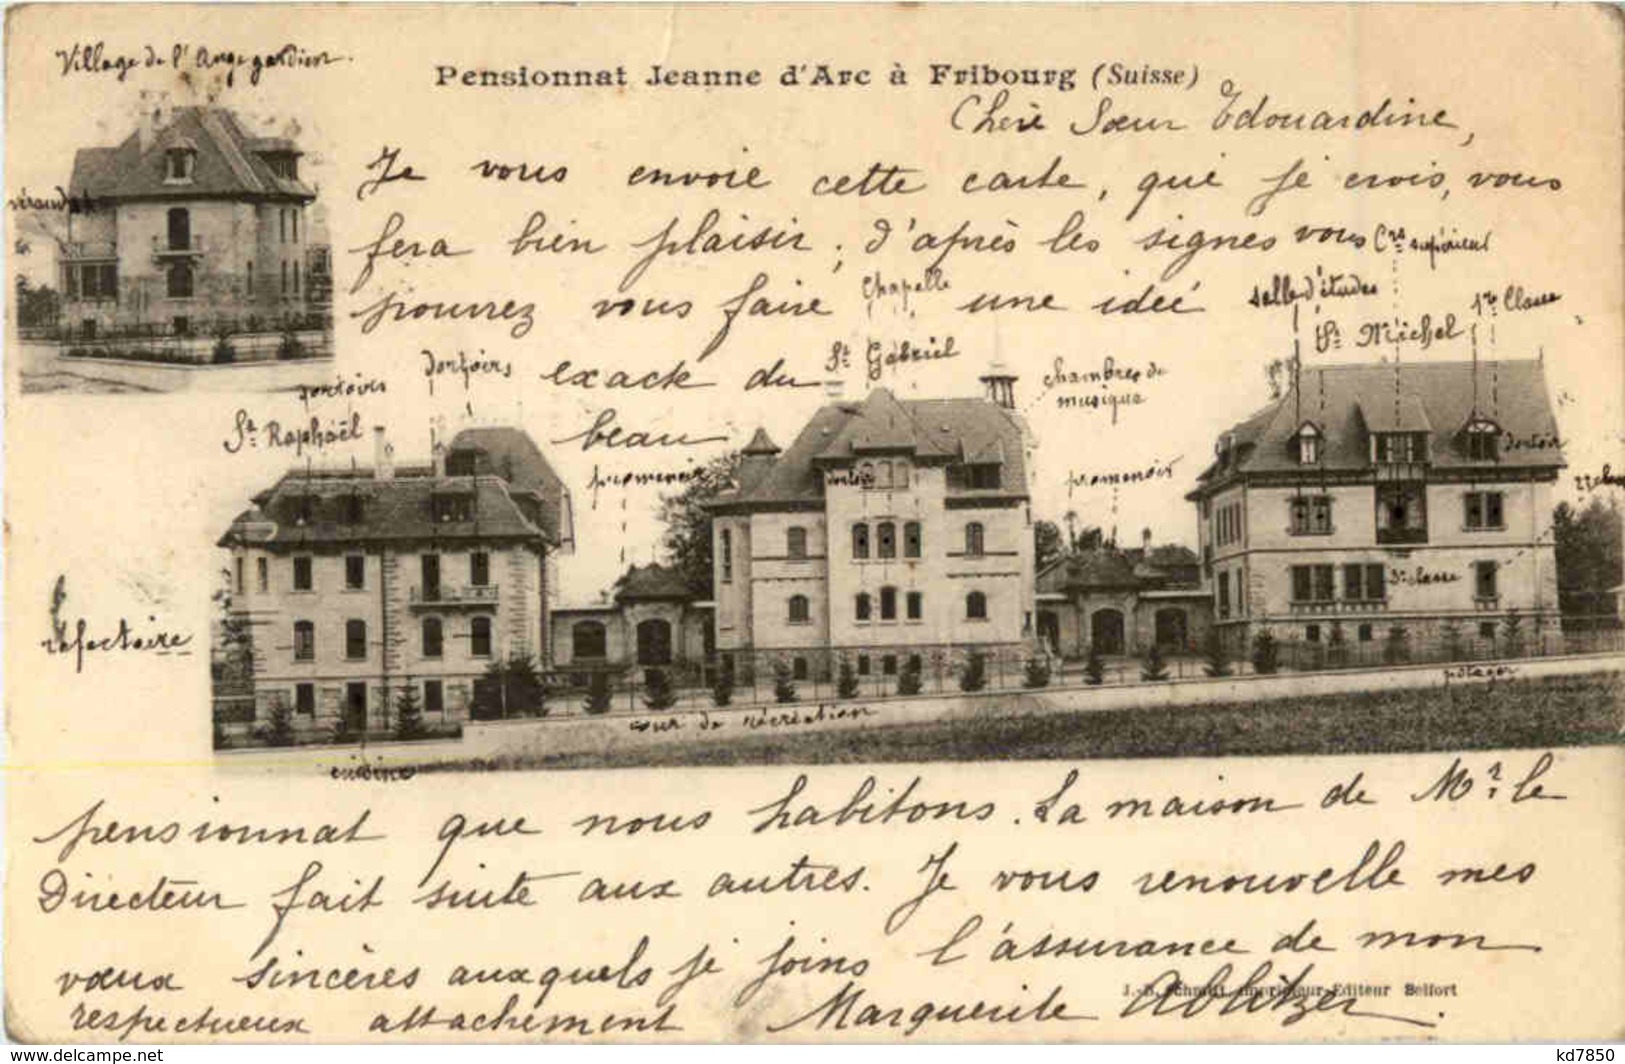 Village de l'Ange gardien.
Pensionnat Jeanne d'Arc à Fribourg (Suisse)
Chère Sœur Edouardine,
Je vous envoie cette carte, qui je crois, vous
véranda
fera bien plaisir ; d'après les signes vous
Crs supérieur
pourrez vous faire une ideé
chapelle
salle d'études
1re Classe
St Michel
exacte du
St Gabriel
dortoirs
dortoirs
chambres de
musique
St Raphaël
beau
promenoir
dortoir
promenoir
dortoir
3e classe
réfectoire
potager
cour de récréation
cuisine
pensionnat que nous habitons. La maison de Mr le
Directeur fait suite aux autres. Je vous renouvelle mes
vœux sincères auxquels je joins l'assurance de mon
J.-B. Schmitt, Imprimeur-Editeur Belfort
respectueux attachement Marguerite
www.delcampe.net
kd7850